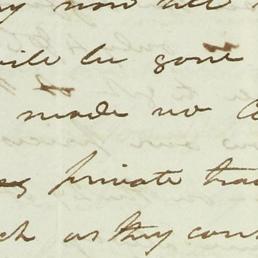 now all
will be gone
made no
private trad
as they cons